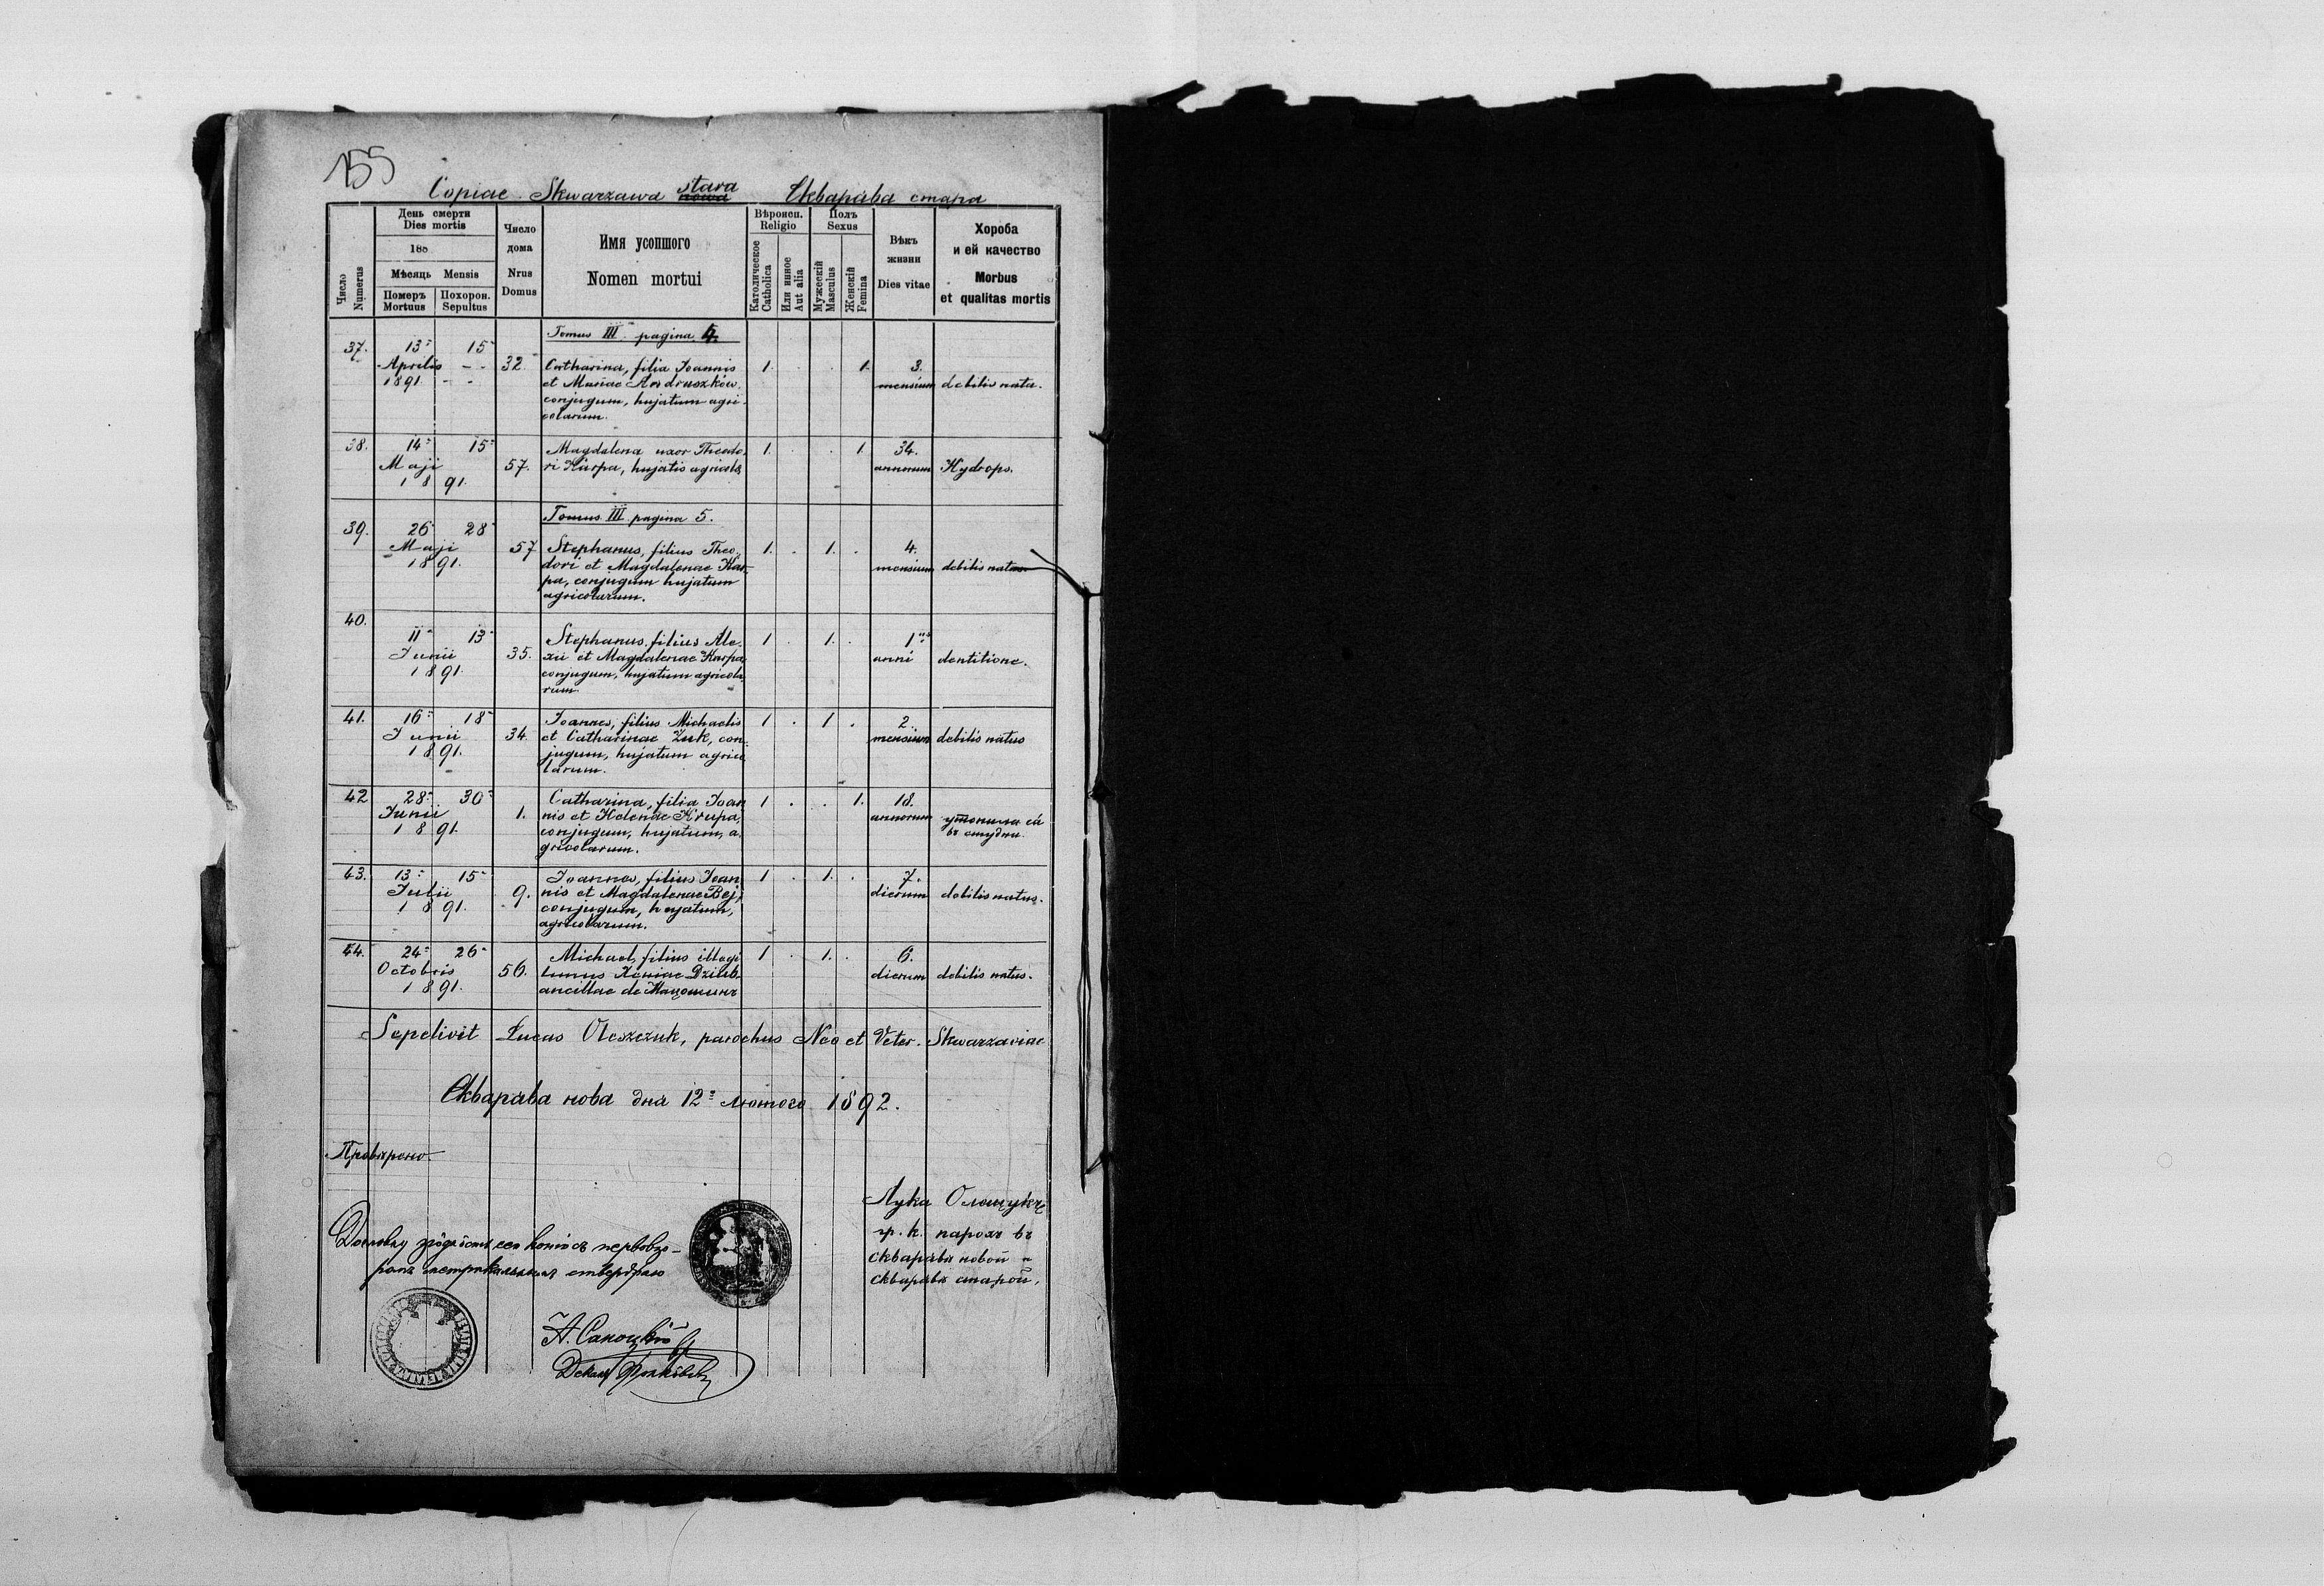 155
Copiae Skwarzawa stara Скварѣва стара
nowa
Число Numerus
День смерти
Dies mortis
188
Мѣсяць Mensis
Померъ Mortuus
Похорон. Sepultus
Число дома
Nrus Domus
Имя усопшого
Nomen mortui
Вѣроисп.
Religio
Католическое Catholica
Или инное Aut alia
Полъ
Sexus
Мужескій Masculus
Женскій Femina
Вѣкъ жизни
Dies vitae
Хороба
и ей качество
Morbus
et qualitas mortis
Tomus III pagina 4.
37. 13 15
Aprilis - - 32 Catharina, filia Joannis 1. . . 1. 3.
1891. - - et Mariae Andruszków, mensium debilis nata.
conjugum, hujatum agri-
colarum.
38. 14 15 Magdalena uxor Theodo- 1. . . 1. 34.
Maji 57. ri Karpa, hujatis agricolae annorum Hydrops.
1891.
Tomus III pagina 5.
39. 26 28
Maji 57 Stephanus, filius Theo- 1. . 1. . 4.
1891. dori et Magdalenae Kar- mensium debilis natus
pa, conjugum hujatum
agricolarum.
40.
11 13 Stephanus, filius Ale- 1 . 1. . 1
Junii 35. xii et Magdalenae Karpa anni dentitione.
1891. conjugum, hujatum agricola-
rum.
41. 16 18 Joannes, filius Michaelis 1 . 1 . 2.
Junii 34. et Catharinae Zuk, con- mensium debilis natus
1891. jugum, hujatum agrico-
larum.
42 28 30 Catharina, filia Joan- 1 . . 1. 18.
Junii 1. nis et Helenae Krupa, annorum утопила ся
1891. conjugum, hujatum, a- въ студни.
gricolarum.
43. 13 15 Joannes, filius Joan- 1 . 1. . 7.
Julii 9. nis et Magdalenae Bej, dierum debilis natus.
1891. conjugum, hujatum,
agricolarum.
44. 24 26 Michael, filius illegi- 1 . 1. . 6.
Octobris 56. timus Xeniae Dziub dierum debilis natus.
1891. ancillae de Мацошинъ
Sepelivit Lucas Oleszczuk, parochus Neo et Veter. Skwarzaviae
Скварѣва нова дна 12 лютого 1892.
Провѣрено
Лука Олещукъ
гр. к. парохъ въ
скварѣвѣ новой и
скварѣвѣ старой.
стверджаю